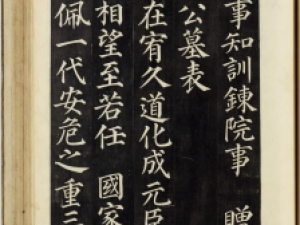 事知訓錬院事 贈
公墓表
在宥久道化成元臣
相望至若任 國家
佩一代安危之重三